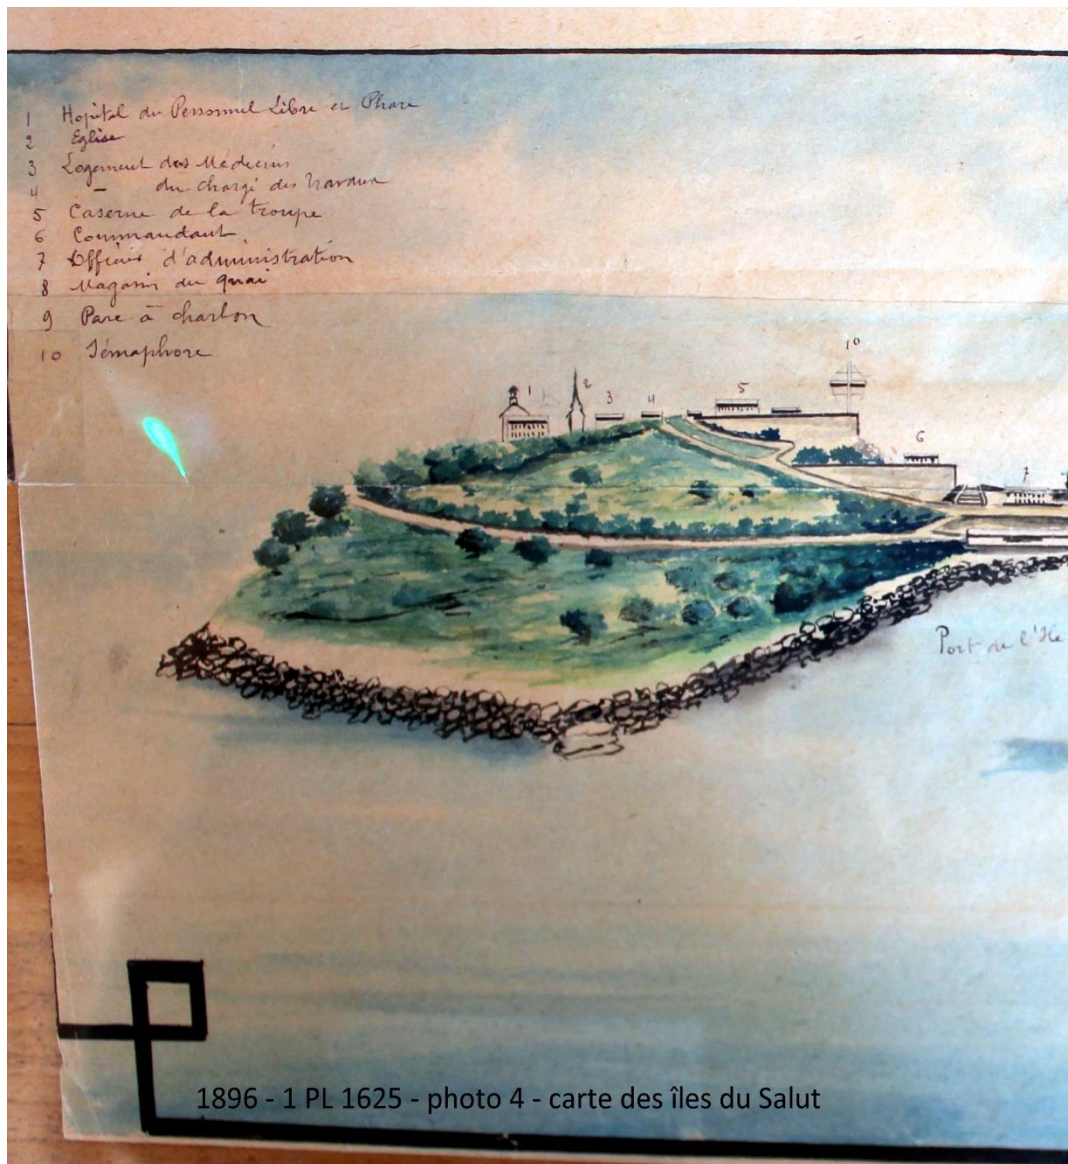 1 Hopital du Personnel Libre et Phare
2 Eglise
3 Logement des Médecins
4 — du chargé des travaux
5 Caserne de la troupe
6 Commandant
7 Officiers d'administration
8 Magasin du quai
9 Parc à charbon
10 Sémaphore
10
1 2 3 4 5
6
7
Port de l'Ile
1896 - 1 PL 1625 - photo 4 - carte des îles du Salut